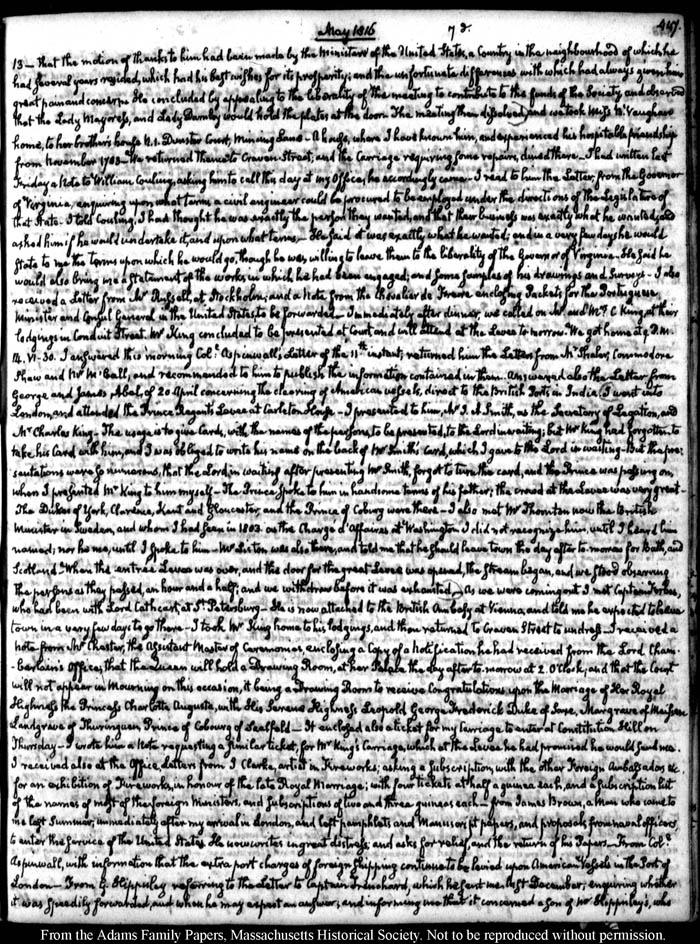 May 1816 7 d. 447.
13 — that the motion of thanks to him had been made by the Minister of the United States, a Country in the neighbourhood of which he
had several years resided, which had his best wishes for its prosperity; and the unfortunate differences with which had always given him
great pain and concern. He concluded by appealing to the liberality of the meeting to contribute to the funds of the Society, and observed
that the Lady Mayoress, and Lady Darnley would hold the plates at the door. The meeting then dissolved, and we took Miss N. Vaughan
home, to her brother's house N. 1. Dunster Court, Mincing Lane — A house, where I have known him, and experienced his hospitable friendship
from November 1783 — We returned thence to Craven Street; and the Carriage requiring some repairs, dined there — I had written last
Friday a Note to William Couling, asking him to call this day at my Office; he accordingly came — I read to him the Letter, from the Governor
of Virginia, enquiring upon what terms a civil engineer could be procured to be employed under the directions of the Legislature of
that State. I told Couling, I had thought he was exactly the person they wanted, and that their business was exactly what he wanted; and
asked him if he would undertake it, and upon what terms — He said it was exactly what he wanted; and in a very few days he would
state to me the terms upon which he would go, though he was willing to leave them to the liberality of the Governor of Virginia. He said he
would also bring me a Statement of the works in which he had been engaged; and some samples of his drawings and Surveys — I also
received a Letter from Mr Russell, at Stockholm; and a Note from the Chevalier de Freire enclosing Packets for the Portuguese
Minister and Consul General in the United States, to be forwarded — Immediately after dinner, we called on Mr. and Mrs. C. King, at their
lodgings in Conduit Street. Mr King concluded to be presented at Court and will attend at the Levee to-morrow. We got home at 9 P.M.
14. VI-30. I answered this morning Col. Aspinwall's Letter of the 11th instant; returned him the Letters from Mr Thaler, Commodore
Shaw and Mr McCall, and recommended to him to publish the information contained in them. Answered also the Letter from
George and James Abel, of 20 April concerning the clearing of American vessels, direct to the British Ports in India. I went into
London, and attended the Prince Regent's Levee at Carleton House — I presented to him, Mr J. A. Smith, as the Secretary of Legation, and
Mr Charles King — The usage is to give cards, with the names of the persons, to be presented, to the Lord in waiting; but Mr King had forgotten to
take his Card with him, and I was obliged to write his name on the back of Mr Smith's Card, which I gave to the Lord in waiting — But the pre-
sentations were so numerous, that the Lord in waiting after presenting Mr Smith, forgot to turn the card, and the Prince was passing on,
when I presented Mr King to him myself — The Prince spoke to him in handsome terms of his father; the crowd at the Levee was very great —
The Dukes of York, Clarence, Kent and Gloucester, and the Prince of Coburg were there — I also met Mr Thornton now the British
Minister in Sweden, and whom I had seen in 1803 as the Chargé d'Affaires at Washington. I did not recognize him, until I heard him
named; nor he me, until I spoke to him — Mr Liston was also there, and told me that he should leave town the day after to-morrow for Bath, and
Scotland. When the entrée Levee was over, and the door for the great Levee was opened, the stream began, and we stood observing
the persons as they passed, an hour and a half; and we withdrew before it was exhausted — As we were coming out I met Captain Forbes,
who had been with Lord Cathcart, at St. Petersburg — He is now attached to the British Embassy at Vienna, and told me he expected to leave
town in a very few days to go there — I took Mr King home to his lodgings, and then returned to Craven Street to undress — I received a
note from Mr Chester, the Assistant Master of Ceremonies, enclosing a Copy of a Notification he had received from the Lord Cham-
-berlain's Office, that the Queen will hold a Drawing Room, at her Palace the day after to-morrow at 2. O'Clock, and that the Court
will not appear in Mourning on this occasion, it being a Drawing Room to receive Congratulations upon the Marriage of Her Royal
Highness the Princess Charlotte Augusta, with His Serene Highness Leopold George Frederick Duke of Saxe, Margrave of Meissen
Landgrave of Thuringuen Prince of Cobourg of Saalfeld — It enclosed also a ticket for my carriage to enter at Constitution Hill on
Thursday — I wrote him a Note requesting a similar ticket, for Mr King's Carriage, which at the Levee he had promised he would send me.
I received also at the Office, Letters from J. Clarke, artist in Fireworks, asking a subscription, with the other Foreign Ambassadors &c.
for an exhibition of Fireworks, in honour of the late Royal Marriage; with four tickets at half a guinea each, and a subscription list
of the names of most of the foreign Ministers, and subscriptions of two and three guineas each — from James Brown, a Man who came to
me last Summer, immediately after my arrival in London, and left pamphlets and Manuscript papers, and proposals from naval officers,
to enter the service of the United States. He now writes in great distress, and asks for relief, and the return of his Papers — From Col.
Aspinwall, with information that the extra port charges of foreign shipping continue to be levied upon American Vessels in the Port of
London — From G. Hippisley referring to the Letter to Captain Trenchard, which he sent me last December; enquiring whether
it was speedily forwarded, and when he may expect an answer; and informing me that it concerned a son of Mr Hippisley's, who
From the Adams Family Papers, Massachusetts Historical Society. Not to be reproduced without permission.